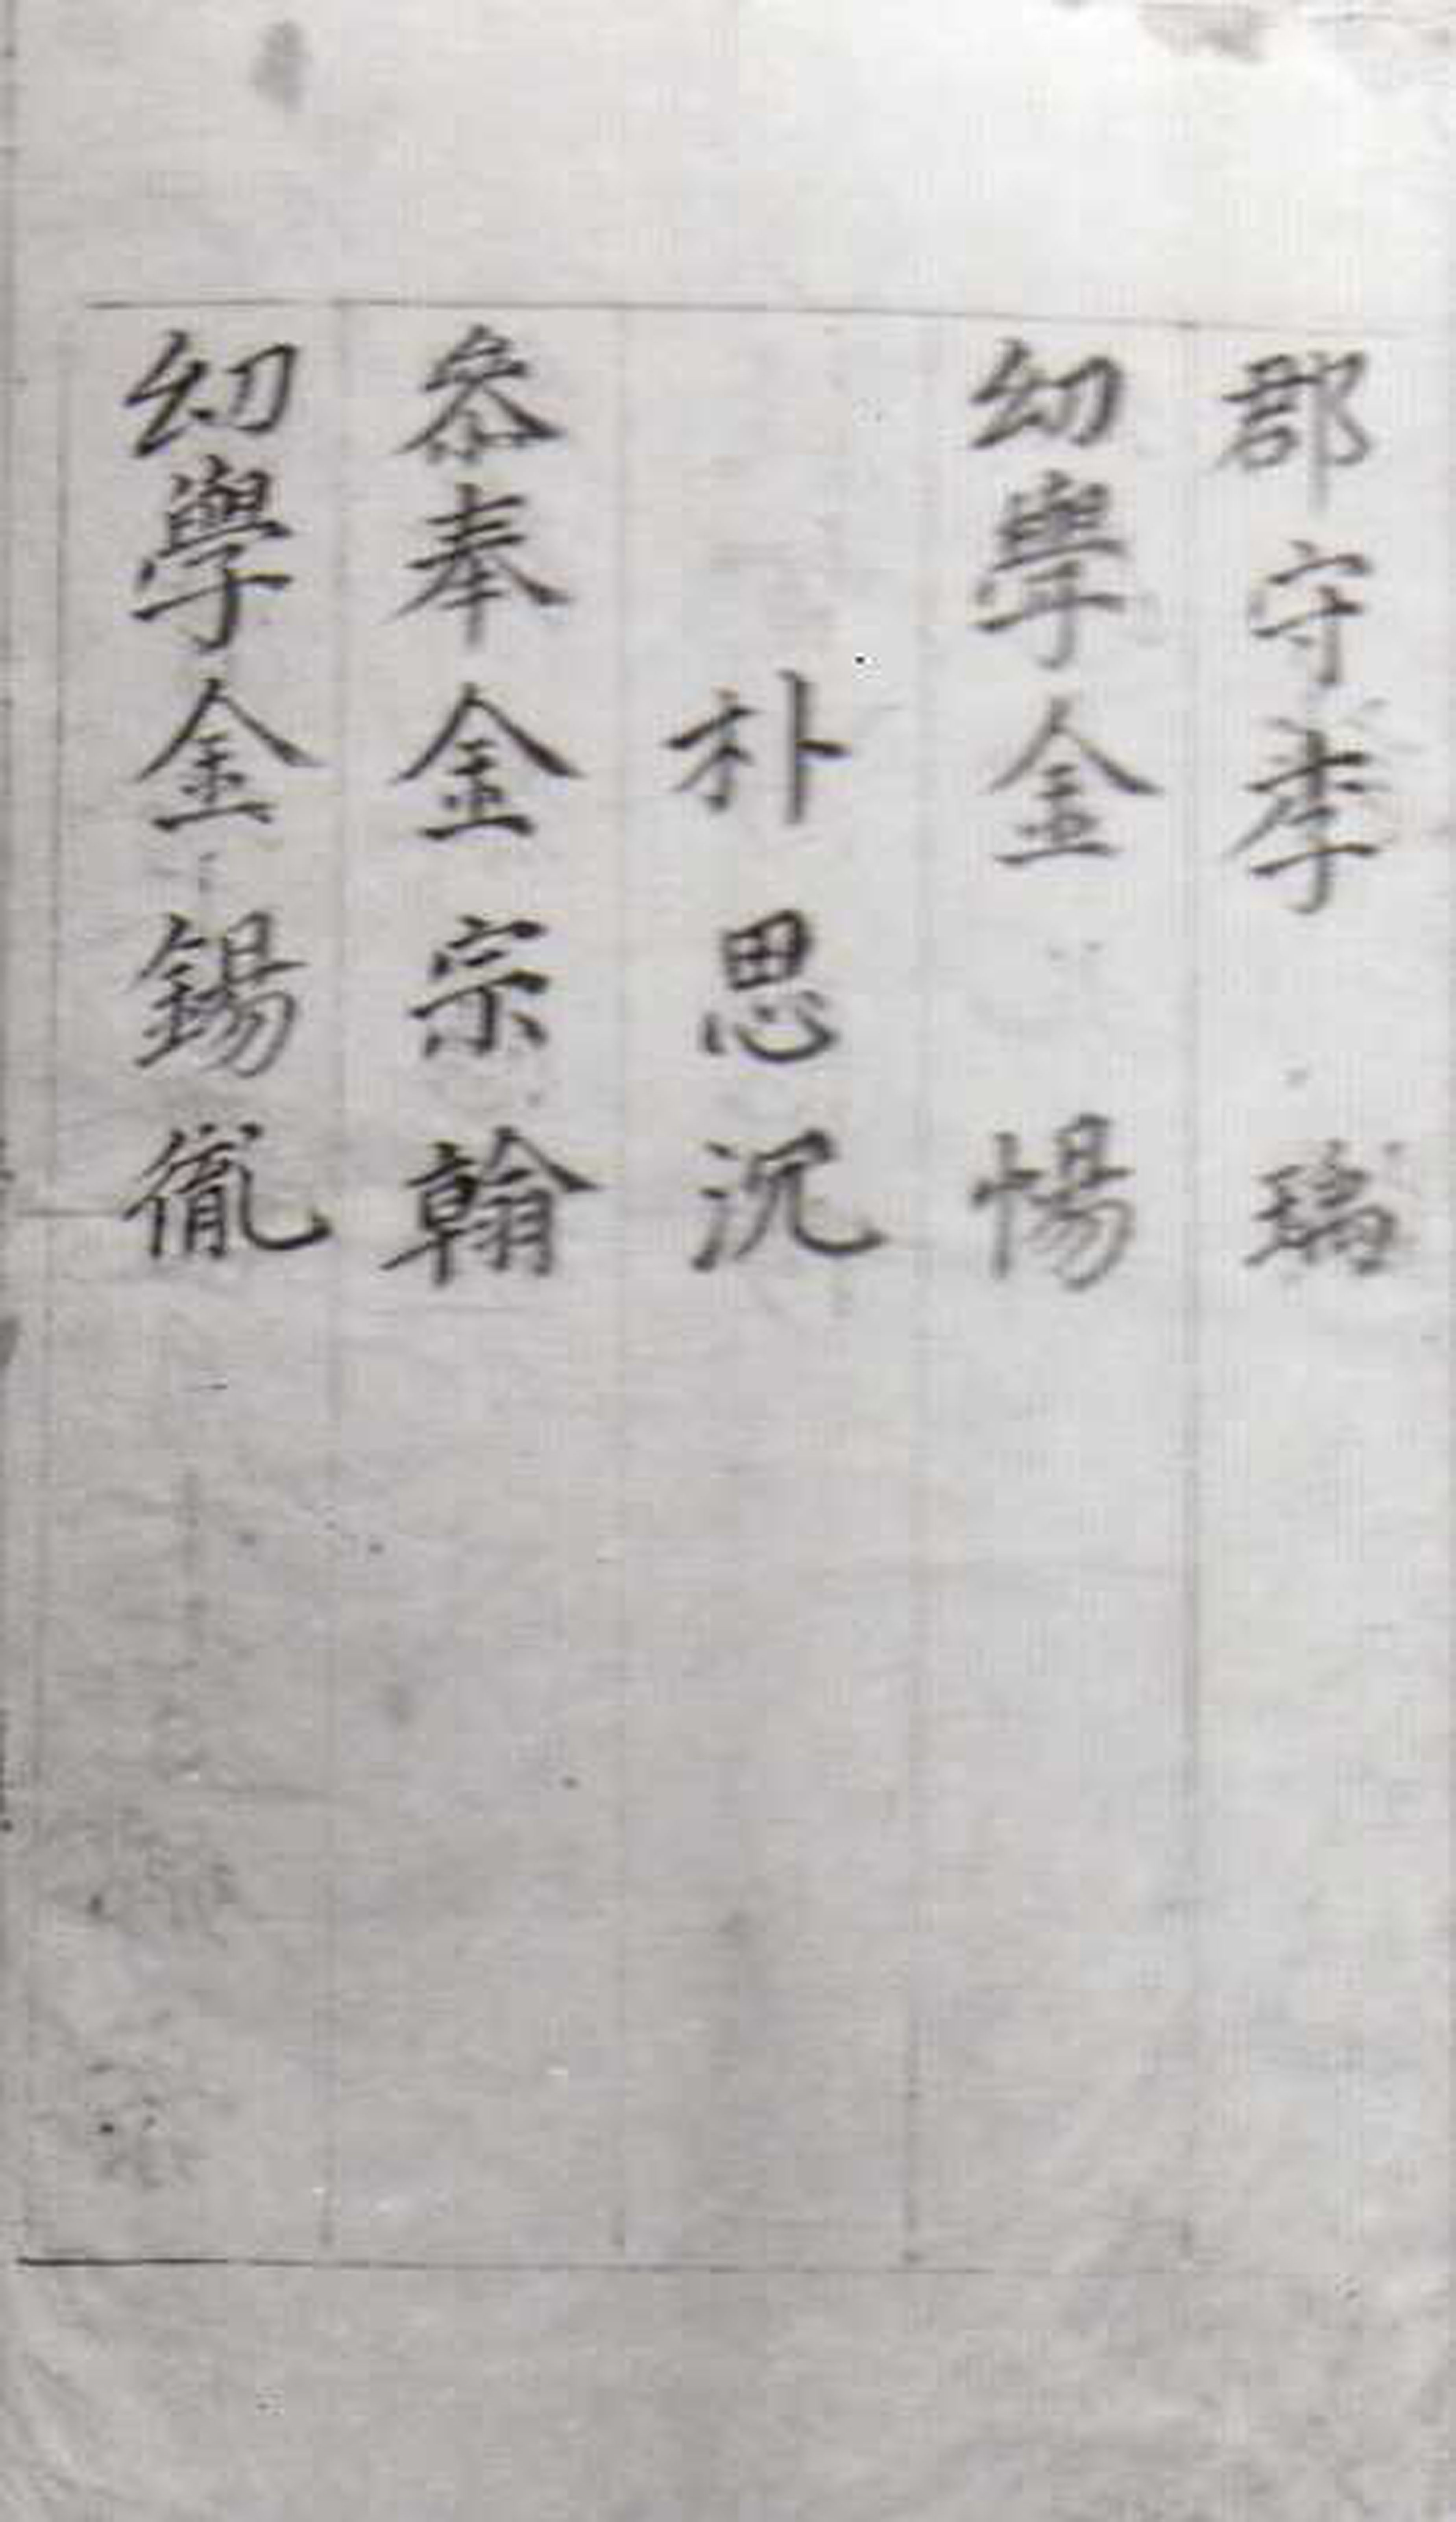 郡守李瑞
幼學金惕
朴思沉
叅奉金宗翰
幼學金錫胤